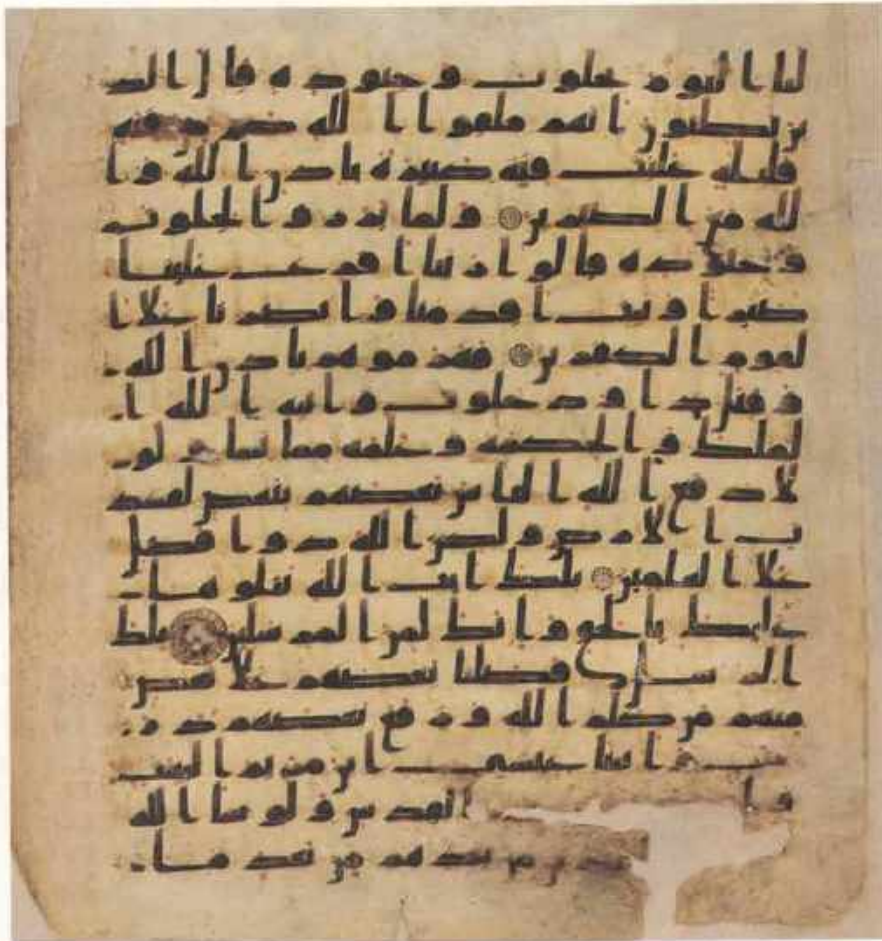 لنا اليوم بجلوت وجنوده قال الذ
ين يظنون انهم ملقوا الله كم من فئة
قليلة غلبت فئة كثيرة باذن الله وا
لله مع الصبرين ولما برزوا لجلوت
وجنوده قالوا ربنا افرغ علينا
صبرا وثبت اقدمنا وانصرنا علا ا
لقوم الكفرين فهزموهم باذن الله
وقتل داود جلوت واتيه الله ا
لملك والحكمة وعلمه مما يشا ولو
لا دفع الله الناس بعضهم ببعض لفسد
ت الارض ولكن الله ذوا فضل
علا العلمين تلك ايت الله نتلوها
عليك بالحق وانك لمن المرسلين تلك
الرسل فضلنا بعضهم علا بعض
منهم من كلم الله ورفع بعضهم در
جت واتينا عيسى ابن مريم البينت
القدس ولو شا الله
من بعدهم من بعد ما